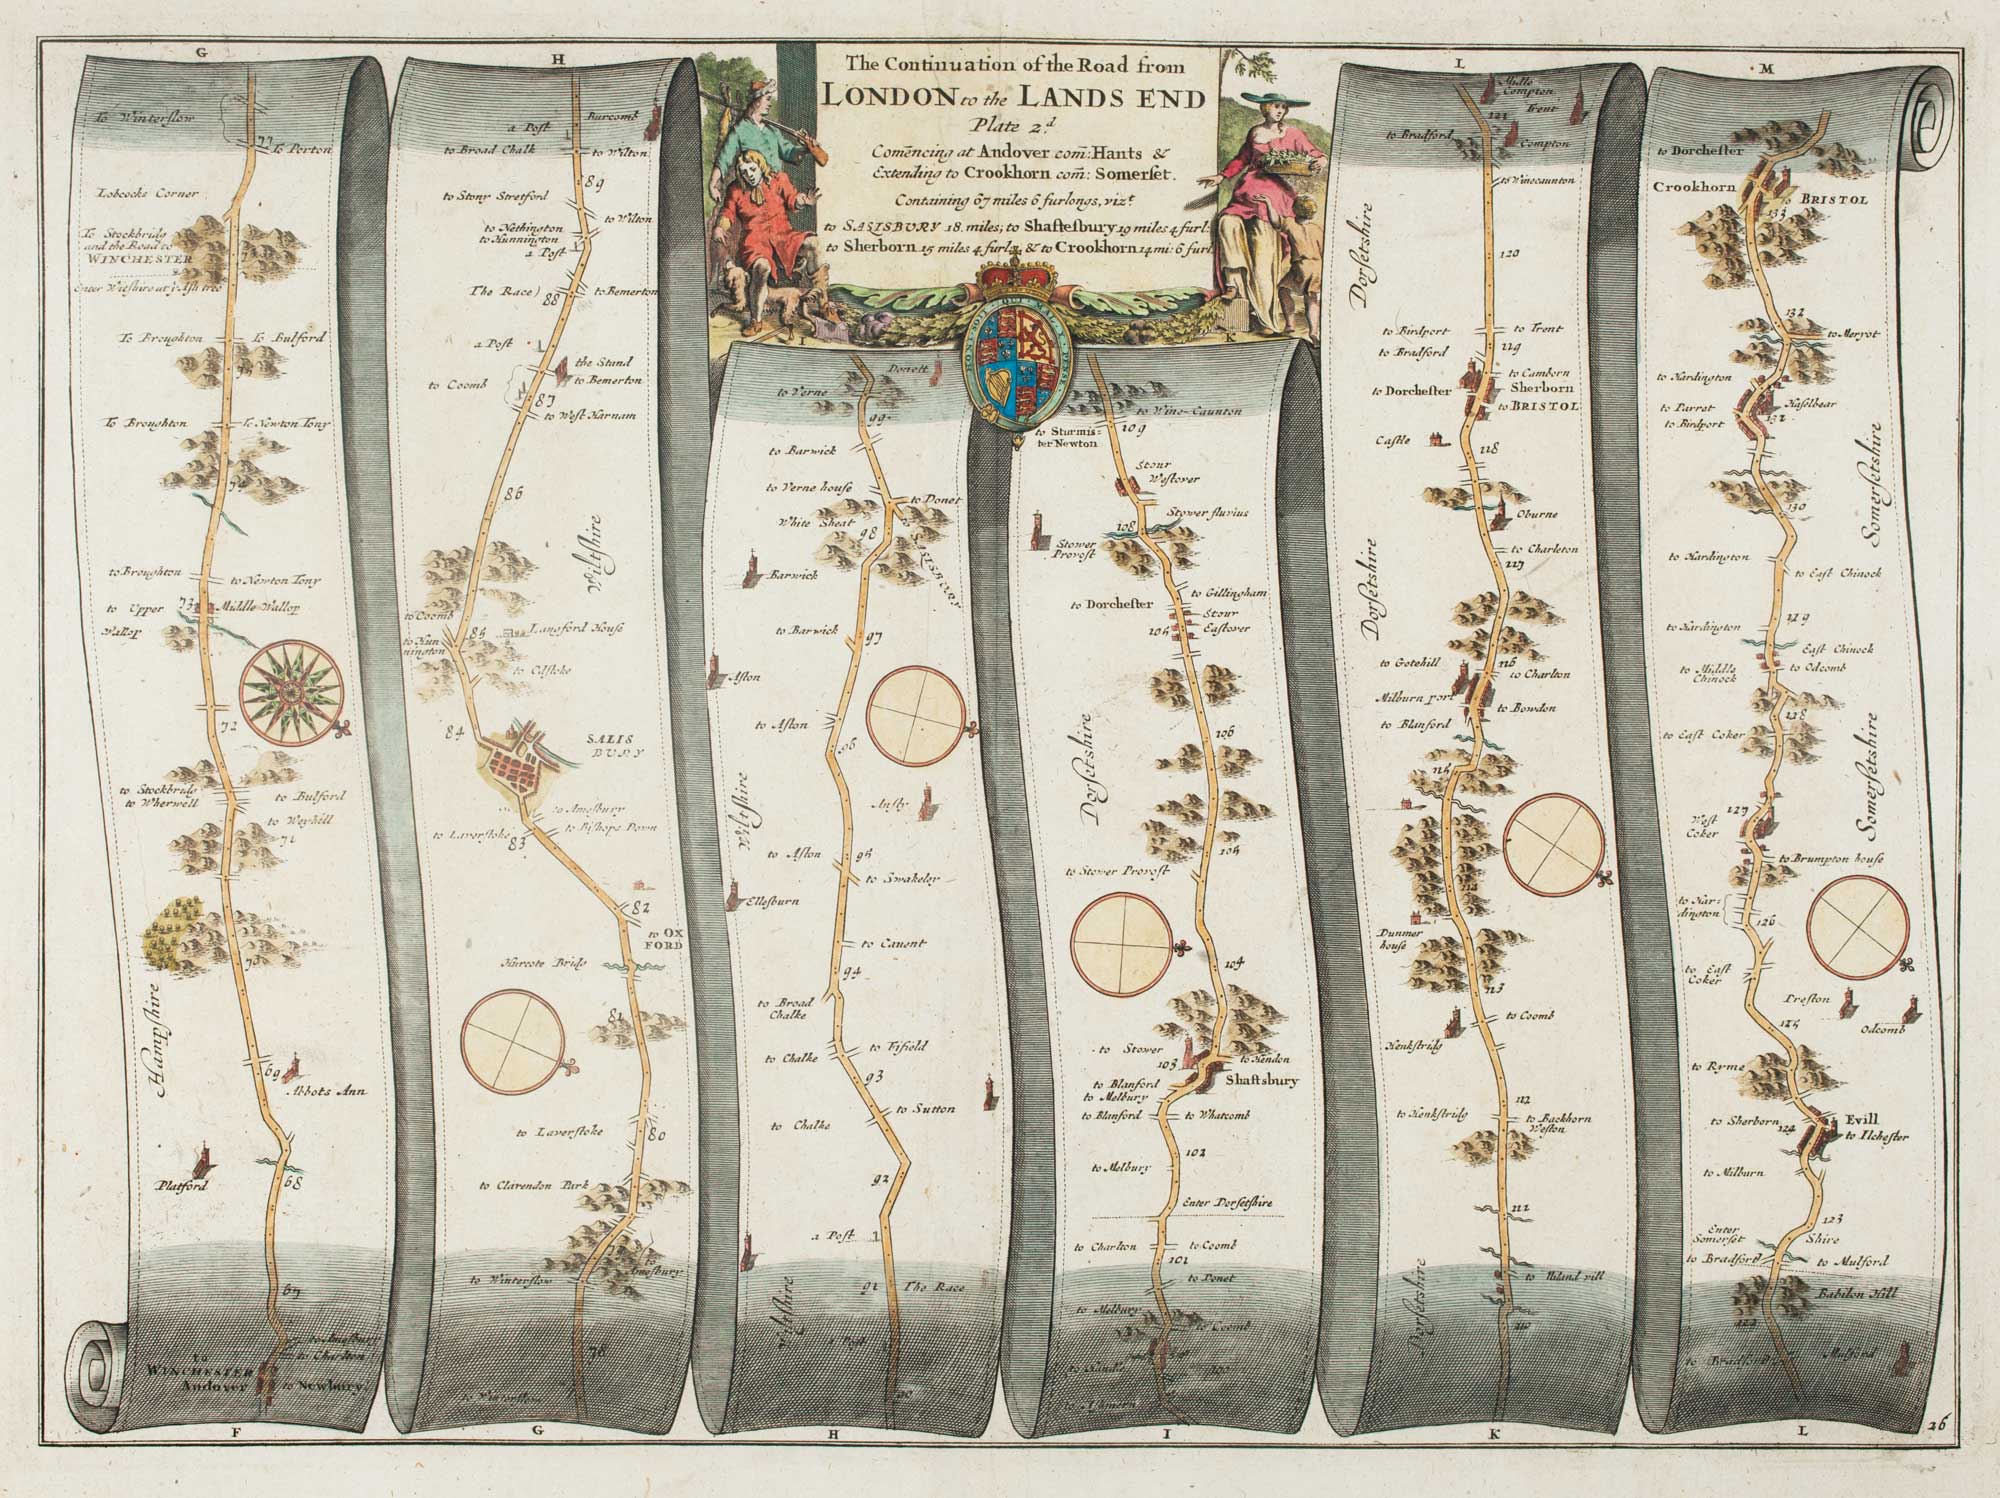 The Continuation of the Road from
LONDON to the LANDS END
Plate 2.d
Com̄encing at Andover com̄: Hants &
Extending to Crookhorn com̄: Somerset.
Containing 67 miles 6 furlongs, vizt
to SALISBURY 18. miles; to Shaftesbury 19 miles 4 furl:
to Sherborn 15 miles 4 furl: & to Crookhorn 14 mi: 6 furl:
HONI SOIT QUI MAL Y PENSE
G
To Winterslow
77
To Porton
Lobcocks Corner
To Stockbridg
and the Road to
WINCHESTER
Enter Wiltshire at ye Ash tree
To Broughton
To Bulford
To Broughton
To Newton Tony
74
to Broughton
to Newton Tony
73
to Upper
Wallop
Middle Wallop
72
to Stockbridg
to Wherwell
to Bulford
to Weyhill
71
70
Hampshire
69
Abbots Ann
Platford
68
67
to Amesbury
to Charlton
to
WINCHESTER
Andover
to Newbury
F
H
a Post
Burcomb
to Broad Chalk
to Wilton
89
to Stony Stretford
to Wilton
to Nethington
to Hunnington
a Post
The Race
88
to Bemerton
a Post
the Stand
to Bemerton
to Coomb
87
to West Harnam
86
Wiltshire
to Coomb
to Hun
nington
85
Langford House
to Odstoke
84
SALIS
BURY
to Amesbury
to Bishops Down
to Laverstoke
83
82
to OX
FORD
Hurcote Bridg
81
to Laverstoke
80
to Clarendon Park
79
to
Amesbury
to Winterslow
78
G
I
Donett
to Verne
99
to Barwick
to Verne house
to Donet
White Sheat
98
to
SALISBURY
Barwick
to Barwick
97
Aston
to Aston
96
Ansty
Wiltshire
to Aston
95
to Swakeley
Ellesburn
to Cavent
94
to Broad
Chalke
to Chalke
to Fifield
93
to Sutton
to Chalke
92
a Post
91
The Race
Wiltshire
a Post
90
H
K
to Wine-Caunton
109
to Sturmis-
ter Newton
Stour
Westover
108
Stower fluvius
Stower
Provost
to Gillingham
to Dorchester
Stour
Eastover
106
Dorsetshire
105
to Stower Provost
104
to Stower
103
to Hendon
Shaftsbury
to Blanford
to Melbury
to Blanford
to Whatcomb
102
to Melbury
Enter Dorsetshire
to Charlton
to Coomb
101
to Donet
to Melbury
to Coomb
100
I
L
Compton
Trent
121
to Bradford
Compton
to Winecaunton
Dorsetshire
120
to Birdport
to Trent
119
to Bradford
to Camborn
to Dorchester
Sherborn
to BRISTOL
Castle
118
Oburne
to Charleton
117
Dorsetshire
116
to Gotehill
to Charlton
Milburn port
to Bowdon
to Blanford
115
Dunmer
house
113
to Coomb
Henkstridg
112
to Henkstridg
to Backhorn
Weston
111
to Thland vill
Dorsetshire
110
K
M
to Dorchester
Crookhorn
to BRISTOL
133
132
to Meryot
to Hardington
Haselbear
to Parrot
to Birdport
Somersetshire
130
to Hardington
to East Chinock
129
to Hardington
East Chinock
to Middle
Chinock
to Odcomb
128
to East Coker
Somersetshire
127
West
Coker
to Brumpton house
to Har-
dington
126
to East
Coker
Preston
Odcomb
125
to Ryme
to Sherborn
124
Evill
to Ilchester
to Milburn
123
Enter
Somerset
Shire
to Bradford
to Mulford
Babilon Hill
122
to Bradford
Mulford
L
26